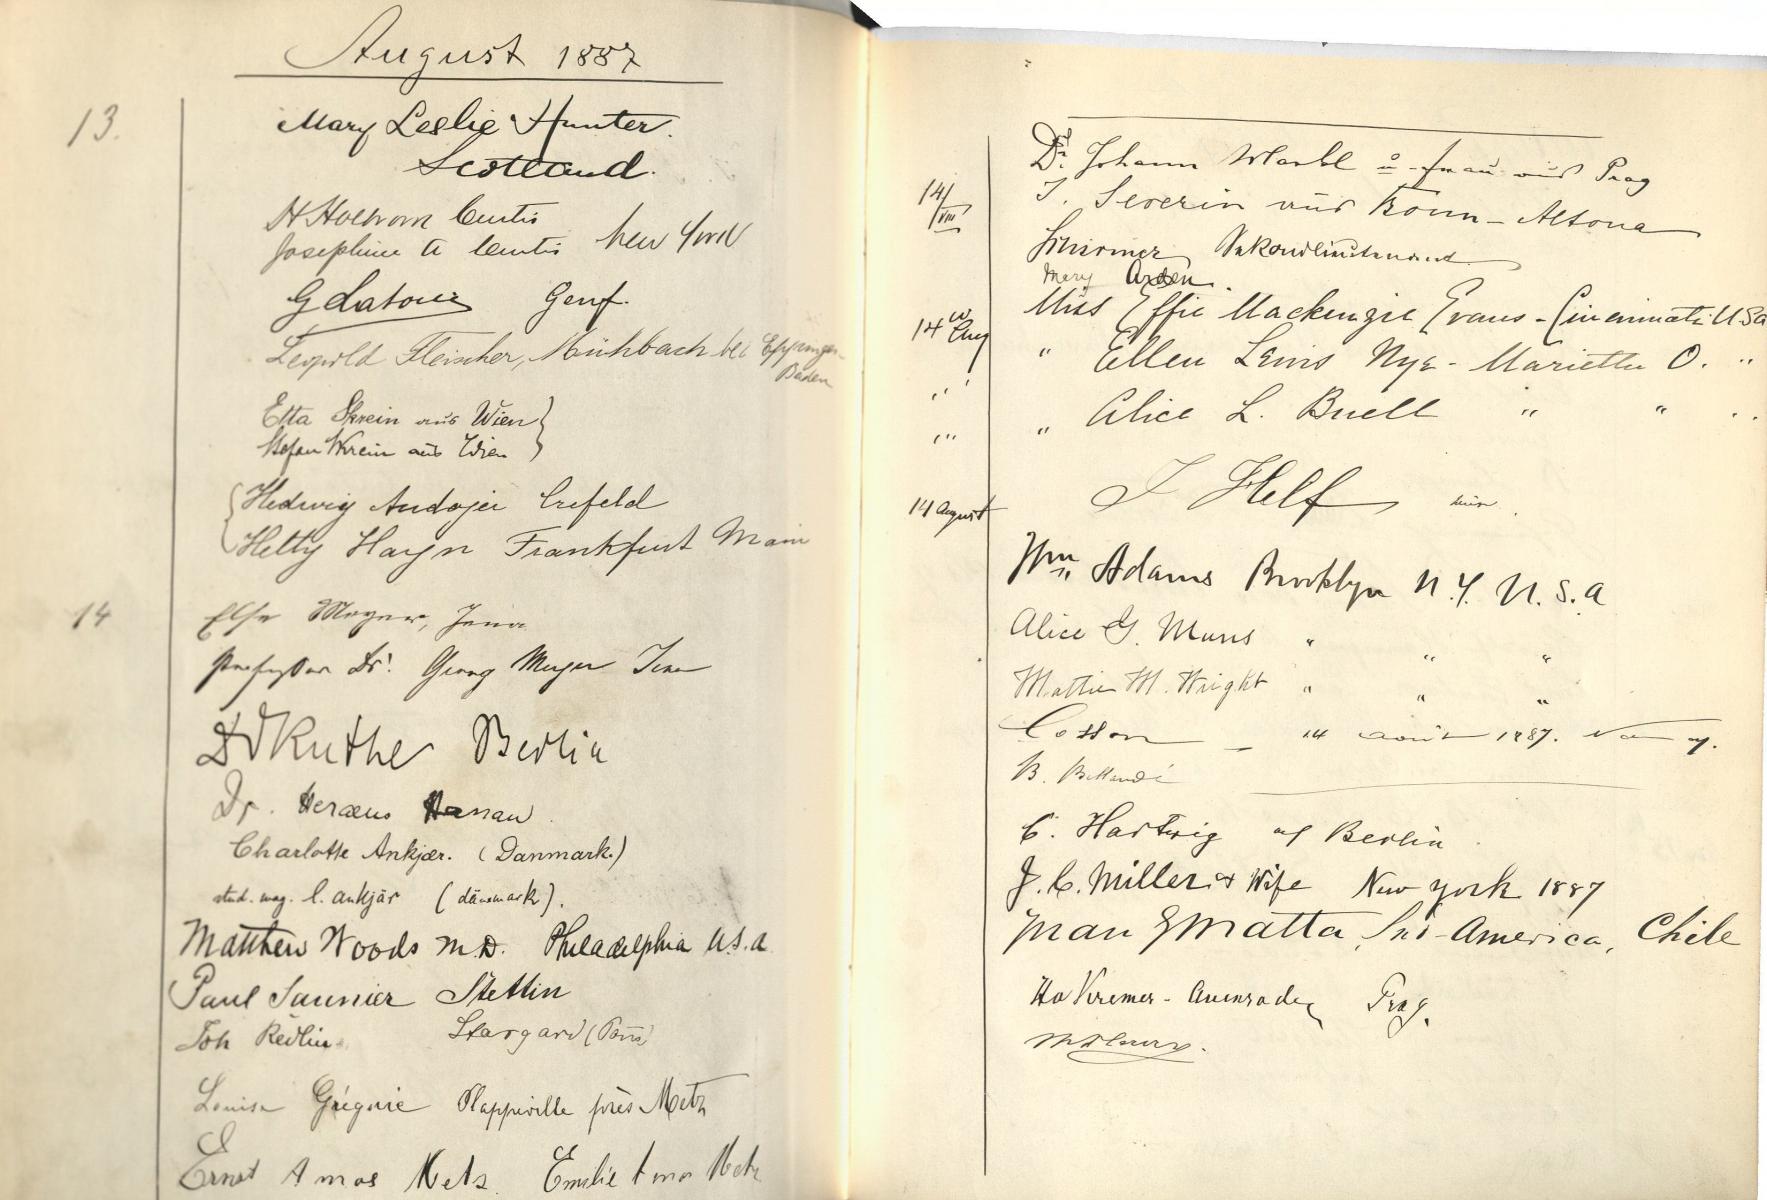 August 1887
13.
Mary Leslie Hunter.
Scotland.
H Holbrook Curtis
Josephine A Curtis New York
G Latour Genf.
Leopold Fleischer, Mühlbach bei Eppingen
Baden
Etta Skrein aus Wien
Stefan Skrein aus Wien
Hedwig Crefeld
Hetty Hayn Frankfurt Main
14
Else Meyer, Jena
Professor Dr. Georg Meyer Jena
Dr Ruthe Berlin
Dr. Heraeus Hanau
Charlotte Ankjær. (Danmark.)
stud. mag. C. Ankjär (dänemark).
Matthew Woods M.D. Philadelphia U.S.A
Paul Saunier Stettin
Joh Redlin Stargard (Pom)
Louise Grégoire Plappeville près Metz
Ernst Amos Metz Emilie Amos Metz
Dr. Johann u Frau aus Prag
14/VIII
J. Severin aus Altona
Schirmer Sekondlieutenant
Mary Arden.
14 Aug Miss Effie Mackenzie Evans - Cincinnati U.S.A
" " Ellen Lewis Nye - Marietta O. "
" " Alice L. Buell " " "
14 August J Helf
Wm Adams Brooklyn N.Y. U.S.A
Alice G. Muns " " "
Mattie M. Wright " " "
Cosson _ 14 août 1887. Nancy.
B.
C. Hartwig Berlin
J. C. Miller & Wife New York 1887
Juan G Matta, Sud-America, Chile
Kremer-Auenrode, Prag.